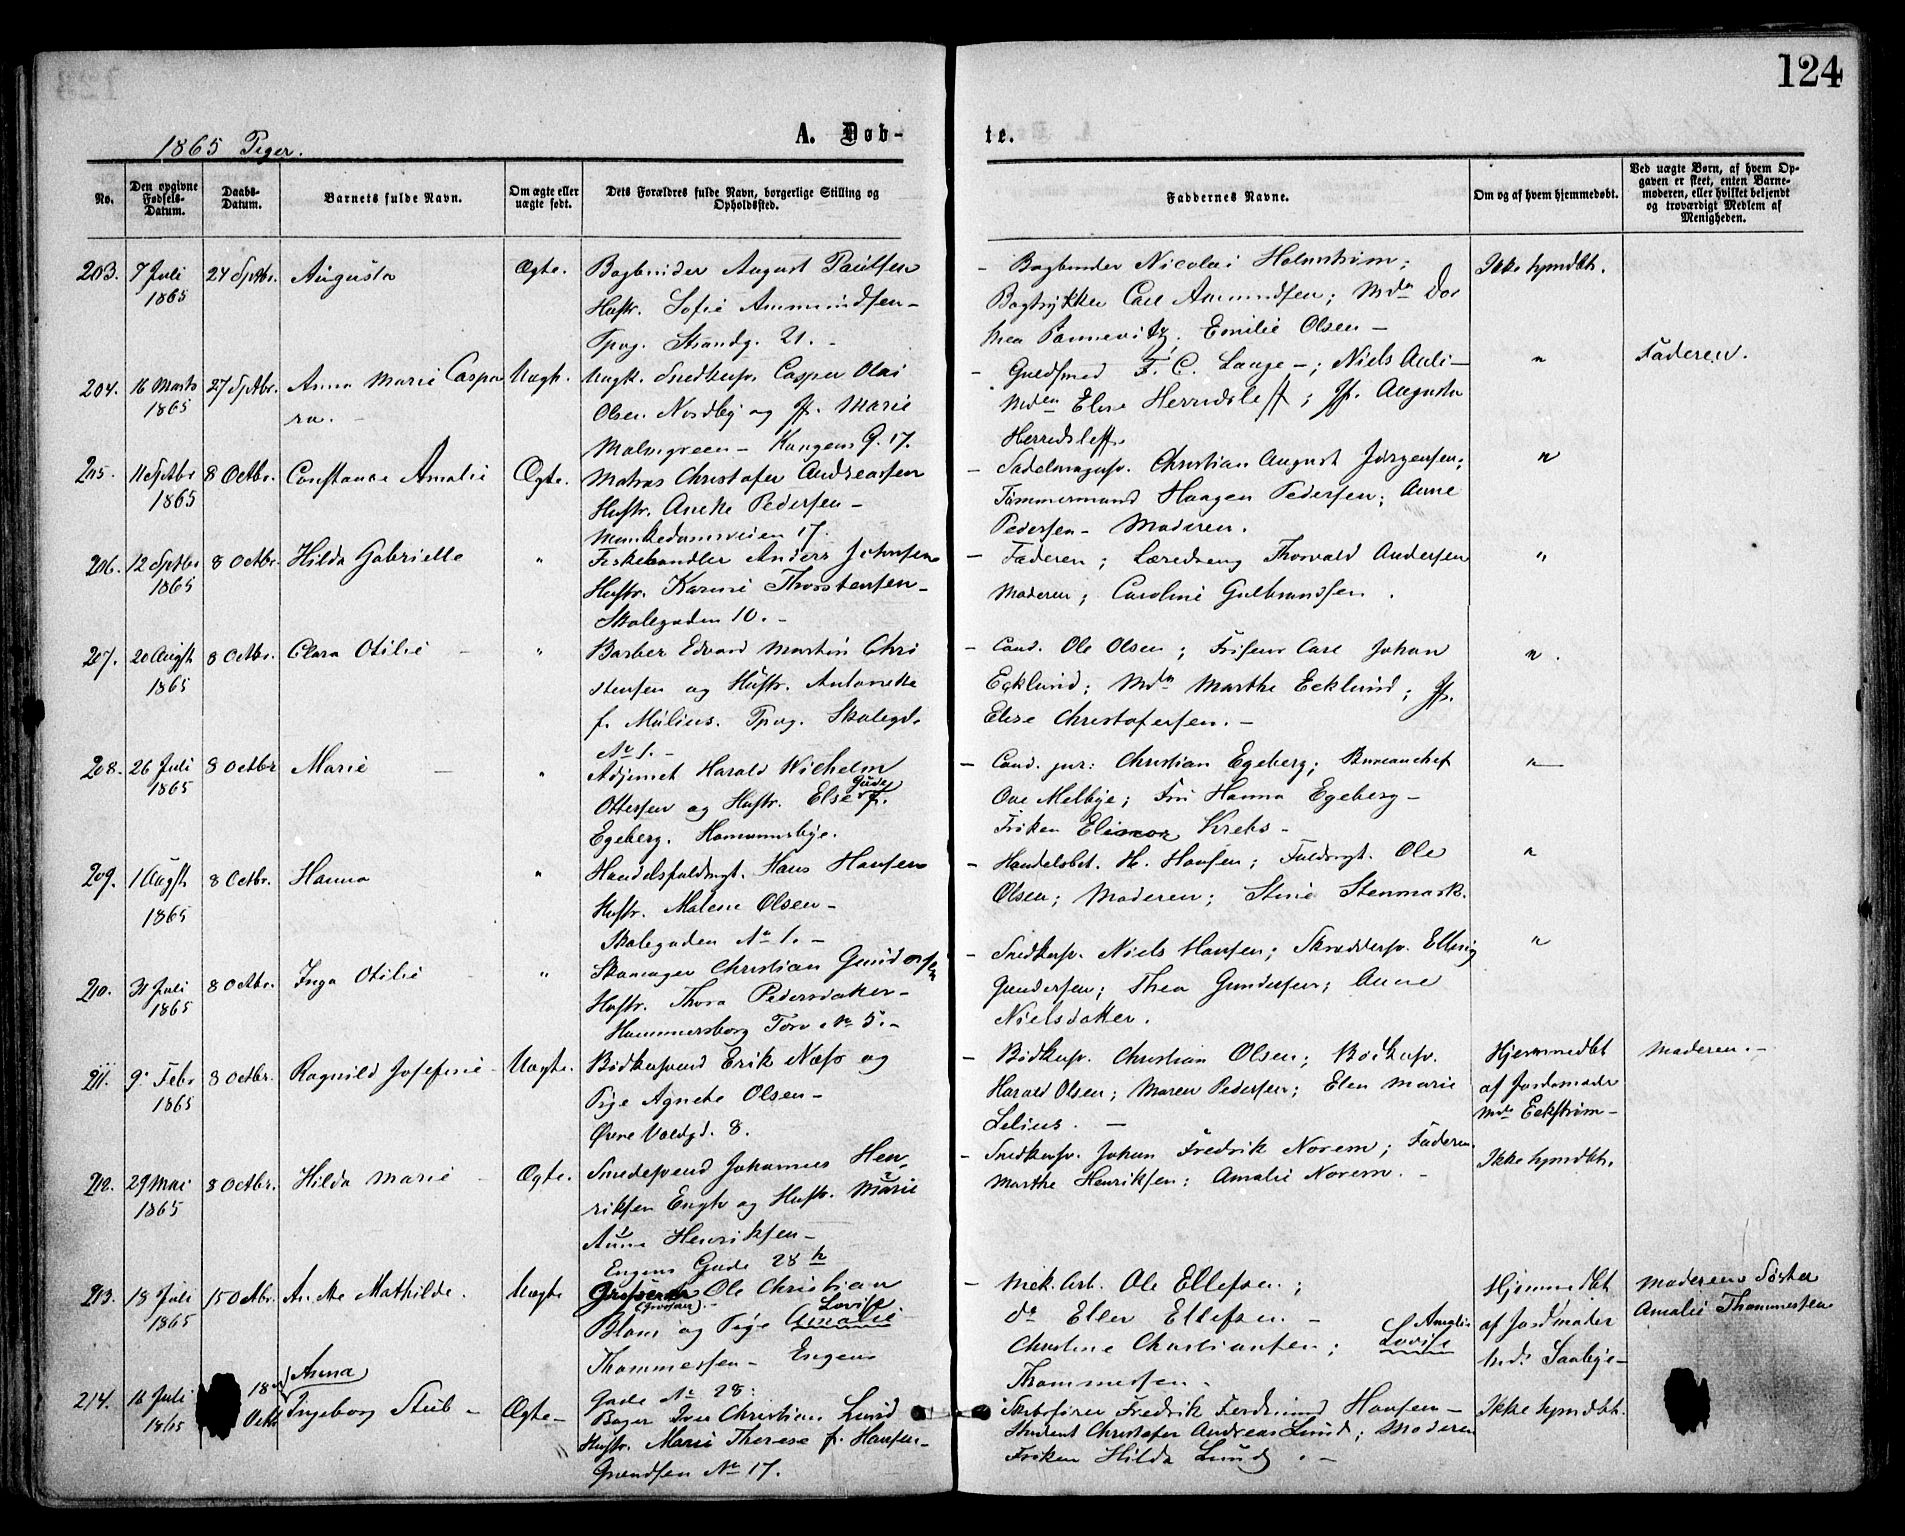 124
1865 Piger.
A. Døb-
te.
No.
Den opgivne Fødsels-Datum.
Daabs-Datum.
Barnets fulde Navn.
Om ægte eller uægte født.
Dets Forældres fulde Navn, borgerlige Stilling og Opholdssted.
Faddernes Navne.
Om og af hvem hjemmedøbt.
Ved uægte Børn, af hvem Op-
gaven er skeet, enten Barne-
moderen, eller hvilket bekjendt
og troværdigt Medlem af
Menigheden.
203. 7 Juli 1865 24 Sptbr. Augusta Ægte.
Bogbinder August Paulsen
Hustr. Sofie Ammundsen -
Tpvg. Strandg. 21. -
- Bogbinder Nicolai Holmstrøm;
Bogtrykker Carl Ammundsen; Mdm Dor
thea Pannevitz; Emilie Olsen -
Ikke hjmdbt.
204. 16 Marts 1865 27 Sptbr. Anna Marie Caspa
ra. -
Uægt.
Ungk. Snedkersv. Casper Olai
Olsen Nordby og Jf. Marie
Malmgreen - Kongens G. 17.
- Guldsmed F. C. Lange -; Niels Auli -
Mdm Elise Herredsleff; Jf. Augusta
Herredsleff.
"
Faderen.
205. 11 Septbr 1865 8 Octbr. Constance Amalie Ægte.
Matros Christofer Andreassen
Hustr. Anette Pedersen -
Munkedamsveien 17.
- Sadelmagersv. Christian August Jørgensen;
Tømmermand Haagen Pedersen; Anne
Pedersen - Moderen.
"
206. 12 Sptbr 1865 8 Octbr. Hilda Gabrielle "
Fiskehandler Anders Johnsen
Hustr. Karine Thorstensen -
Skolegaden 10. -
- Faderen; Læredreng Thorvald Andersen
Moderen; Caroline Gulbrandsen.
"
207. 20 Augst 1865 8 Octbr. Clara Otilie - "
Barber Edvard Martin Chri
stensen og Hustr. Antonette
f. Mülius. Tpvg. Skolegd.
No 1. -
- Cand. Ole Olsen; Friseur Carl Johan
Ecklund; Mdm Marthe Ecklund; Jf.
Elise Christofersen. -
".
208. 26 Juli 1865 8 Octbr Marie - "
Adjunct Harald Wilhelm
Ottersen og Hustr. Else Gude f.
Egeberg. Homannsbye.
- Cand. jur: Christian Egeberg; Bureauchef
Ove Melbye; Fru Hanna Egeberg -
Frøken Elinor Krebs -
"
209. 1 Augst 1865 8 Octbr. Hanna "
Handelsfuldmgt. Hans Hansen
Hustr. Malene Olsen -
Skolegaden No 1. -
- Handelsbet. H. Hansen; Fuldmgt. Ole
Olsen; Moderen; Stine Stenmark.
"
210. 31 Juli 1865 8 Octbr. Inga Otilie - "
Skomager Christian Gundersen
Hustr. Thora Pedersdatter -
Hammersborg Torv No 5. -
- Snedkersv. Niels Hansen; Skræddersv. Elling
Gundersen; Thea Gundersen; Anne
Nielsdatter.
"
211. 9 Febr 1865 8 Octbr. Ragnild Josefine - Uægte.
Bødkersvend Erik Næss og
Pige Agnete Olsen -
Øvre Voldgd. 8.
- Bødkersv. Christian Olsen; Bødkersv.
Harald Olsen; Maren Pedersen; Elen Marie
Lelius. -
Hjemmedbt
af Jordemoder
Mdm Eckstrøm -
Moderen. -
212. 29 Mai 1865 8 Octbr. Hilda Marie - Ægte.
Smedesvend Johannes Hen-
riksen Engh og Hustr. Marie
Anne Henriksen -
Engens Gade 28 b
- Snedkersv. Johan Fredrik Norem; Faderen
Marthe Henriksen; Amalie Norem. -
Ikke hjmdbt.
213. 18 Juli 1865 15 Octbr. Anette Mathilde. Uægte
Ole Christian
Blom og Pige Amalie Lovise
Thommessen - Engens
Gade No 28:
- Mek. Arb. Ole Ellefsen;
do Eller Ellefsen. -
Christine Christiansen; Lovise Amalie
Thommessen -
Hjemmedbt
af Jordmoder
Md: Saabye -
Moderens Søster
Amalie Thommessen
214. 16 Juli 1865 18 Octb Anna
Ingeborg Stub - Ægte -
Bager Iver Christian Lund
Hustr. Marie Therese f. Hansen -
Grændsen No 17.
Skibsfører Fredrik Ferdinand Hansen -
Student Christofer Andreas Lund; Moderen
Frøken Hilda Lund. -
Ikke hjmdbt.